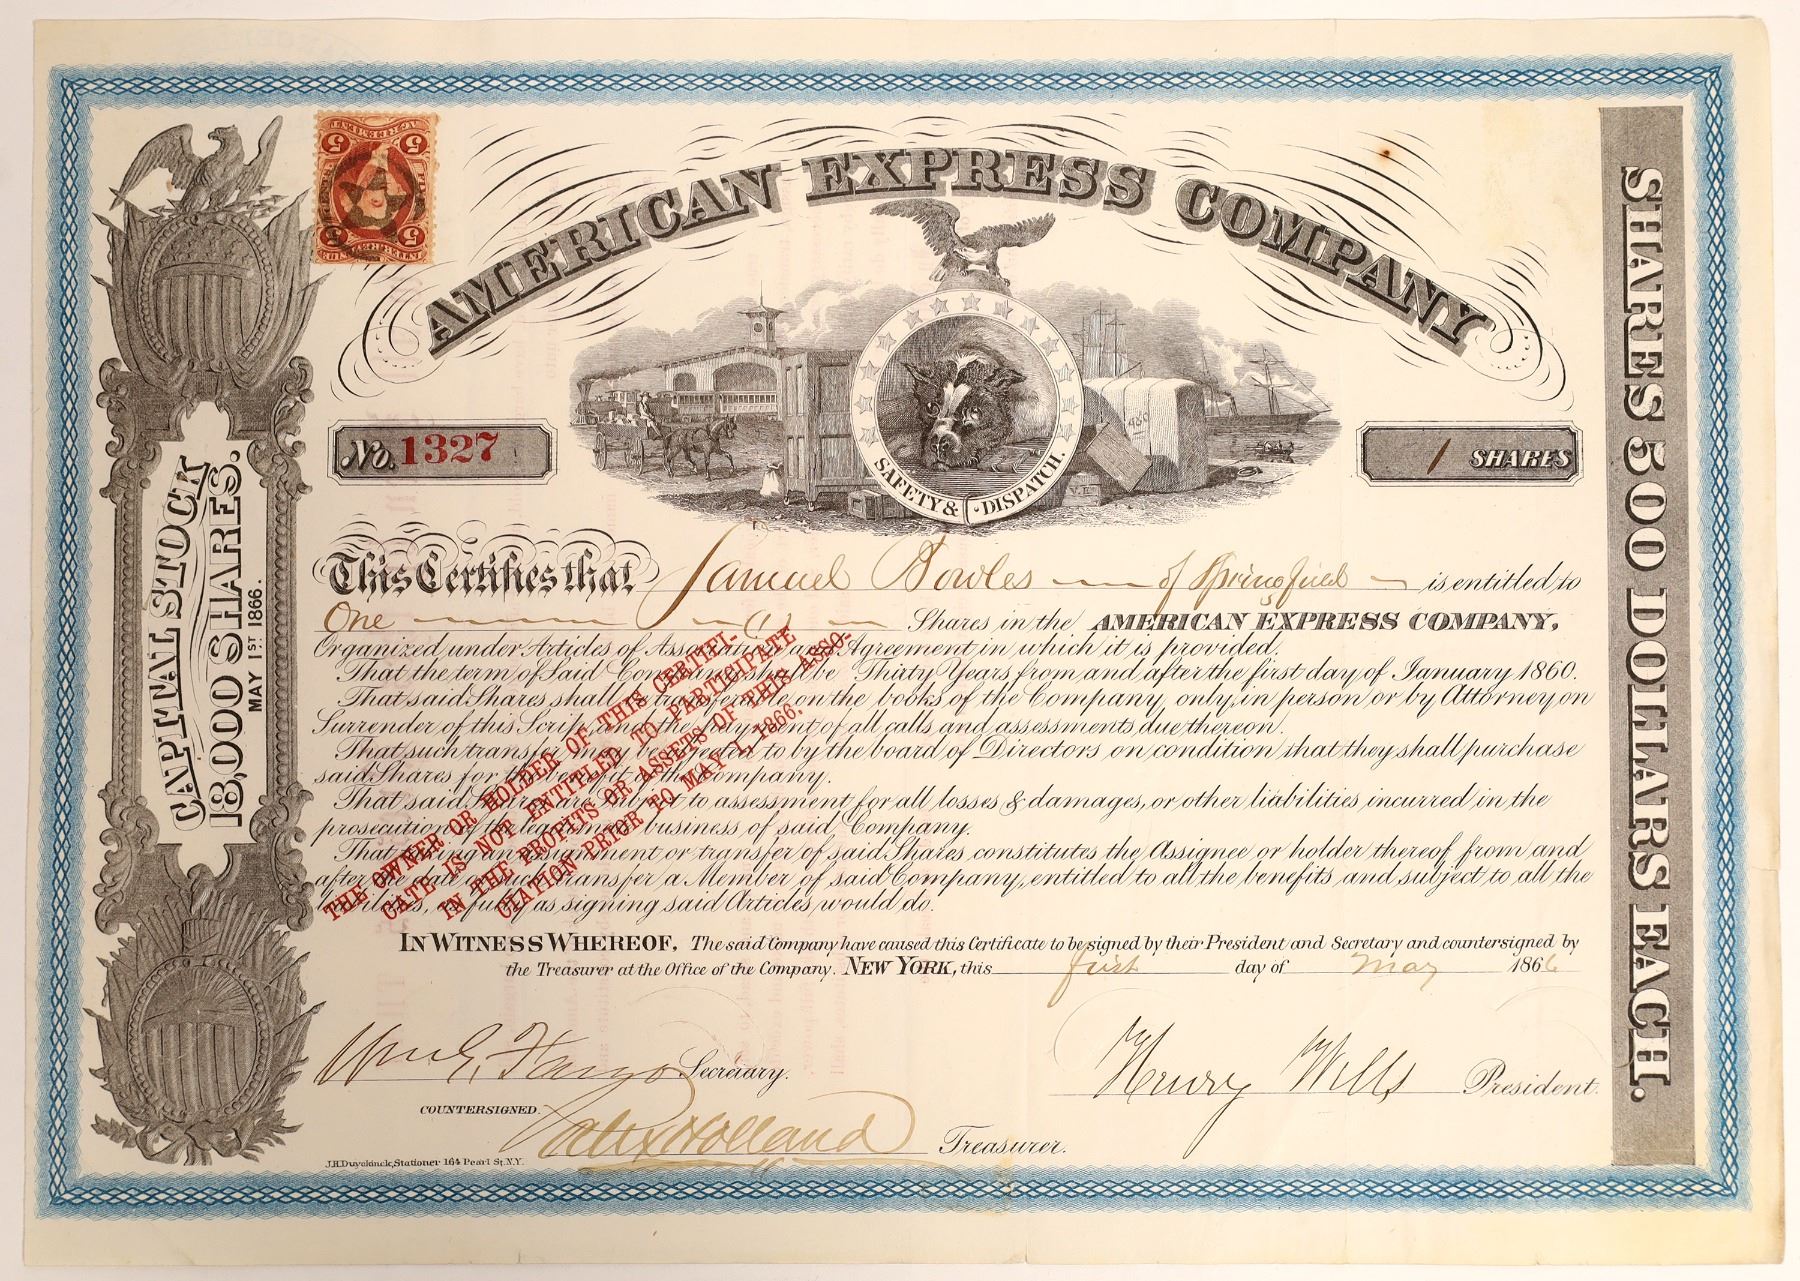 AMERICAN EXPRESS COMPANY
5 5
5 5
AGREEMENT
No. 1327
SAFETY & DISPATCH.
1 SHARES
CAPITAL STOCK
18,000 SHARES.
MAY 1ST 1866.
SHARES 500 DOLLARS EACH.
This Certifies that Samuel Bowles of Springfield is entitled to
One Shares in the AMERICAN EXPRESS COMPANY,
Organized under Articles of Association and Agreement in which it is provided.
That the term of Said Company shall be Thirty Years from and after the first day of January 1860.
That said Shares shall be transferable on the books of the Company, only, in person or by Attorney on
Surrender of this Scrip, and the payment of all calls and assessments due thereon.
That such transfer may be objected to by the board of Directors on condition that they shall purchase
said Shares for the benefit of the Company.
That said Shares are Subject to assessment for all losses & damages, or other liabilities incurred in the
prosecution of the legitimate business of said Company.
That taking an assignment or transfer of said Shares constitutes the Assignee or holder thereof from and
after the date of such transfer a Member of said Company, entitled to all the benefits and subject to all the
liabilities, as fully as signing said Articles would do.
THE OWNER OR HOLDER OF THIS CERTIFI-
CATE IS NOT ENTITLED TO PARTICIPATE
IN THE PROFITS OR ASSETS OF THIS ASSO-
CIATION PRIOR TO MAY 1, 1866.
IN WITNESS WHEREOF, The said Company have caused this Certificate to be signed by their President and Secretary and countersigned by
the Treasurer at the Office of the Company. NEW YORK, this first day of May 1866
Wm G. Fargo Secretary.
Henry Wells President.
COUNTERSIGNED.
Alex Holland Treasurer.
J.H. Duyckinck, Stationer 164 Pearl St. N.Y.